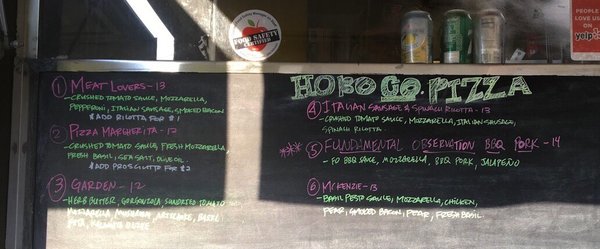 FOOD SAFETY
CERTIFIED
PEOPLE
LOVE US
ON
yelp
HOBO GO. PIZZA
1 MEAT LOVERS-13
-CRUSHED TOMATO SAUCE, MOZZARELLA,
PEPPERONI, ITALIAN SAUSAGE, SMOKED BACON
*ADD RICOTTA FOR $1
2 PIZZA MARGHERITA-12
-CRUSHED TOMATO SAUCE, FRESH MOZZARELLA,
FRESH BASIL, SEA SALT, OLIVE OIL.
*ADD PROSCIUTTO FOR $2
3 GARDEN-12
-HERB BUTTER, GORGONZOLA, SUNDRIED TOMATO
MOZZARELLA, MUSHROOM, ARTICHOKE, BASIL
FETA, KALAMATA OLIVE
4 ITALIAN SAUSAGE & SPINACH RICOTTA-13
-CRUSHED TOMATO SAUCE, MOZZARELLA, ITALIAN SAUSAGE,
SPINACH RICOTTA
*** 5 FUNDAMENTAL OBSERVATION BBQ PORK-14
-FO BBQ SAUCE, MOZZARELLA, BBQ PORK, JALAPEÑO
6 MCKENZIE-13
-BASIL PESTO SAUCE, MOZZARELLA, CHICKEN,
PEAR, SMOKED BACON, PEAR, FRESH BASIL.